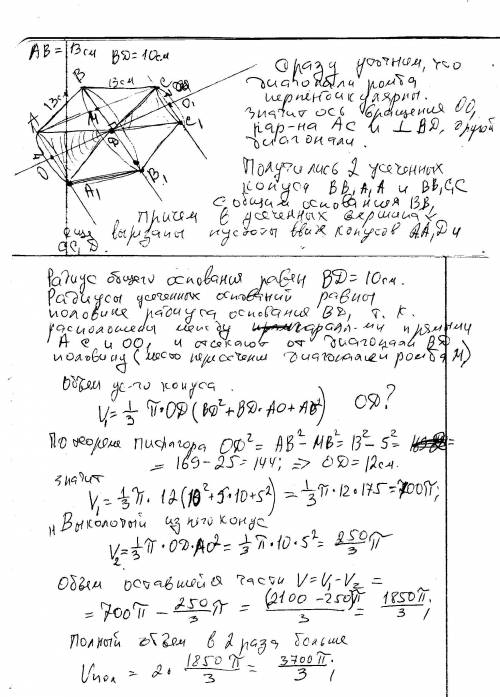 AB = 13см BD = 10см
B 13см C
13см
A M O₁
C₁
O D
A₁ B₁
Сразу уточним, что
диагонали ромба
перпендикулярны.
значит ось вращения OO₁
пар-на AC и ⊥ BD, другой
диагонали.
Получились 2 усеченных
конуса BB₁A₁A и BB₁C₁C
с общим основания BB₁
причем в усеченных вершинах
вырезаны пустоты ввиде конусов AA₁D и
CC₁D.
Радиус общего основания равен BD = 10см.
Радиусы усеченных оснований равны
половине радиуса основания BD, т. к.
расположены между паралл-ми прямыми
AC и OO₁ и отсекают от диагонали BD
половину (место пересечения диагоналей ромба M)
Объем ус-го конуса.
V₁ = 1/3 π·OD (BD² + BD·AO + AO²) OD?
По теореме Пифагора OD² = AB² - MB² = 13² - 5² =
= 169 - 25 = 144; => OD = 12см.
значит
V₁ = 1/3 π · 12 (10² + 5·10 + 5²) = 1/3 π · 12 · 175 = 700π;
Выколотый из него конус
V₂ = 1/3 π · OD · AO² = 1/3 π · 10 · 5² = 250/3 π
Объем оставшейся части V = V₁ - V₂ =
= 700π - 250/3 π = (2100 - 250)π/3 = 1850π/3;
Полный объем в 2 раза больше
Vпол = 2 · 1850π/3 = 3700π/3;